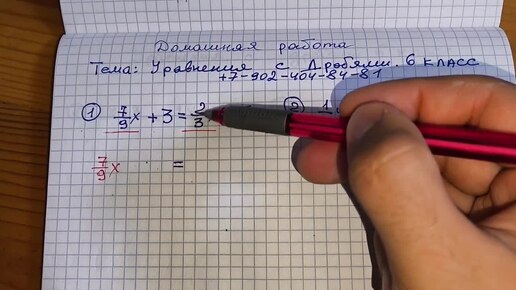 Домашняя работа
Тема: Уравнения с Дробями. 6 КЛАСС
+7-902-404-84-81
① 7/9 x + 3 = 2/3 ② 1
7/9 x =